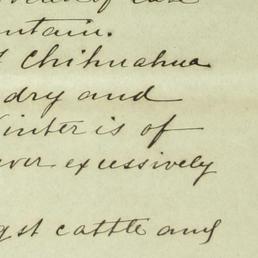 ntain.
Chihuahua
dry and
inter is of
ver excessively
gst cattle and